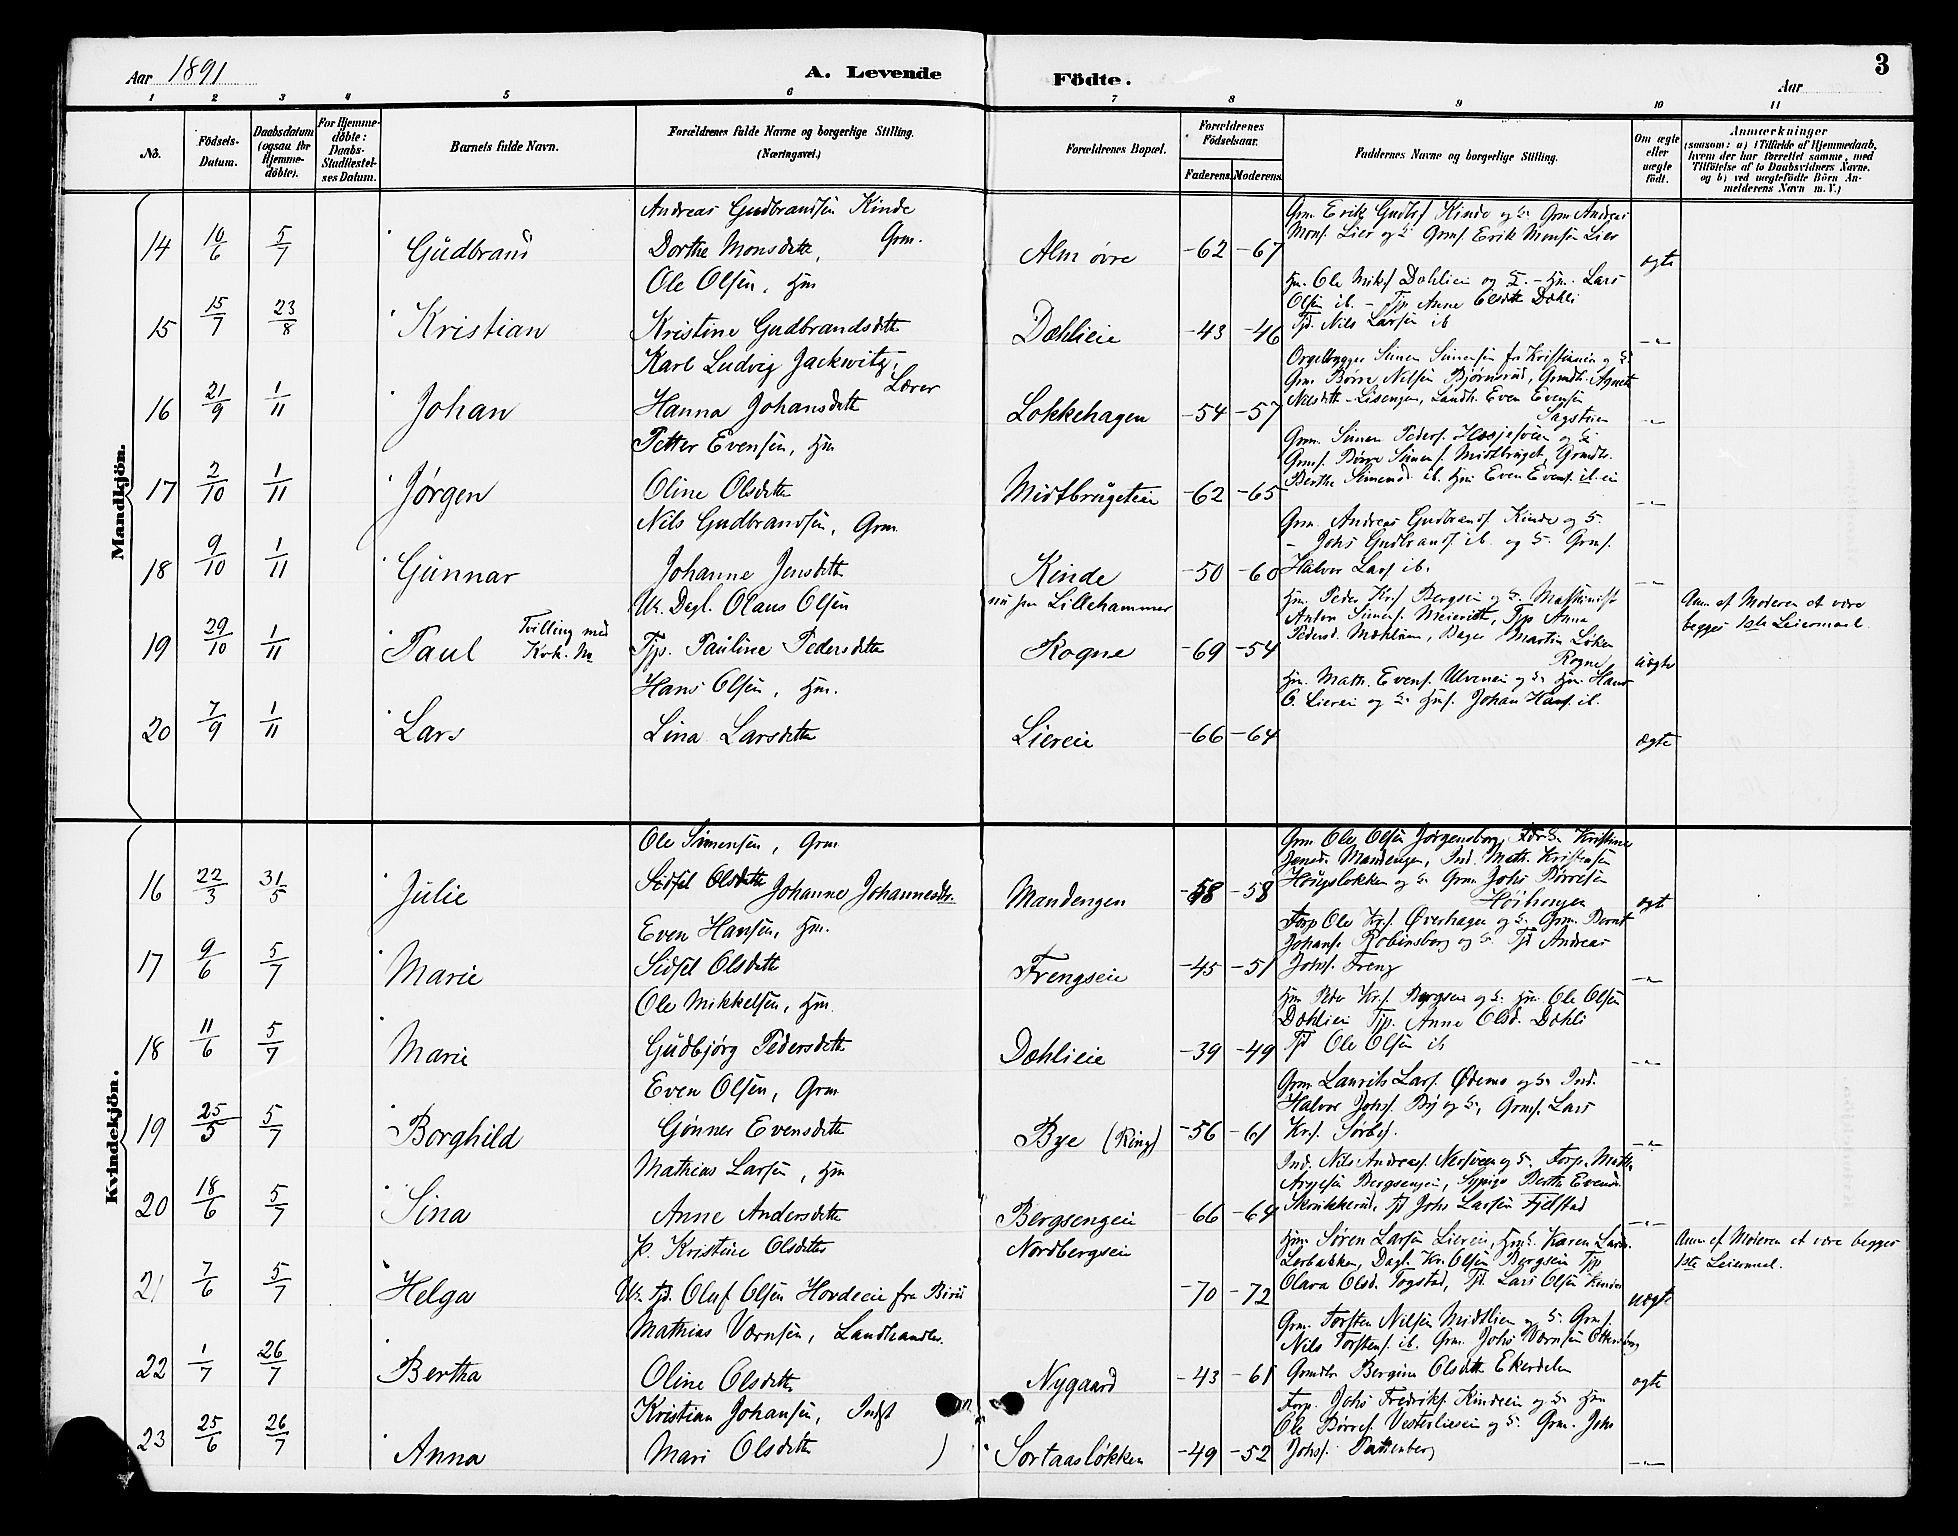 Aar 1891
A. Levende Födte.
3
Aar
1 2 3 4 5 6 7 8 9 10 11
No. Födsels-Datum. Daabsdatum (ogsaa for Hjemme-döbte). For Hjemme-döbte: Daabs-Stadfæstel-ses Datum. Barnets fulde Navn. Forældrenes fulde Navne og borgerlige Stilling. (Næringsvei.) Forældrenes Bopæl. Forældrenes Födselsaar. Faderens. Moderens. Faddernes Navne og borgerlige Stilling. Om ægte eller uægte födt. Anmærkninger (saasom: a) i Tilfælde af Hjemmedaab, hvem der har forrettet samme, med Tilföielse af to Daabsvidners Navne. og b) ved uægtefödte Börn An-melderens Navn m. V.)
Mandkjön.
14 10/6 5/7 Gudbrand Andreas Gudbrandsen Kinde Grm. Dorthe Monsdtt, Alm øvre -62 -67 Grm. Erik Gudbr. Kinde og h. Grm Andreas Mons. Lier og h. Grms. Erik Monsen Lier ægte
15 15/7 23/8 Kristian Ole Olsen, Hm Kristine Gudbrandsdtt Dæhlieie -43 -46 Hm. Ole Mik. Dæhlien og h. - Hm. Lars Olsen ib. - Tjp Anne Olsdtt Dæhli Tjd. Nils Larsen ib -"-
16 21/9 1/11 Johan Karl Ludvig Jackwitz, Lærer Hanna Johansdtt Løkkehagen -54 -57 Orgelbygger Simen Simensen fra Kristiania og h. Grm. Børre Nilsen Bjørnsrud, Grmdtr. Agnethe Nilsdtt Lisengen, Landh. Even Evensen Sagstuen -"-
17 2/10 1/11 Jørgen Petter Evensen, Hm Oline Olsdtt Midtbrugeteie -62 -65 Grm. Simen Peders. og h. Grms. Børre Simens. Midtbruget, Grmdtr. Berthe Simensd. ib. Hm Even Evens. ib. eie -"-
18 9/10 1/11 Gunnar Nils Gudbrandsen, Grm. Johanne Jensdtt Kinde -50 -60 Grm. Andreas Gudbrands. Kinde og h. - Johs Gudbrands. ib. og h. Grms. Halvor Lars. ib. -"-
19 29/10 1/11 Paul Tvilling med Kvk. Uk. Dagl. Olaus Olsen Tjp. Pauline Pedersdtt nu paa Lillehammer Rogne -69 -54 Hm. Peder Kr. Bergseie og h. Maskinist Anton Simens. Meieriet, Tjp Anna Pedersd. Mæhlum, Bager Martin Løken Rogne uægte Anm. af Moderen at være begges 1ste Leiermaal.
20 7/9 1/11 Lars Hans Olsen, Hm. Lina Larsdtt Liereie -66 -64 Hm. Math. Evens. Ulveneie og h. Hm. Hans O. Liereie og h. Hms. Johan Hans. ib. ægte
Kvindekjön.
16 22/3 31/5 Julie Ole Simensen, Grm Sidsel Olsdtt Johanne Johannesdtr. Mandengen -58 -58 Grm Ole Olsen Jørgensborg, Kristine Jensd. Mandengen, Ind. Math. Kristensen Haugsløkken og h. Grm Johs Børresen Høihengen ægte
17 9/6 5/7 Marie Even Hansen, Hm. Sidsel Olsdtt Frengseie -45 -51 Forp Ole Kr. Øverhagen og h. Grm. Bernt Johans. Robinsborg og h. Tjd Andreas Johs. Freng -"-
18 11/6 5/7 Marie Ole Mikkelsen, Hm. Gudbjørg Pedersdtt Dæhlieie -39 -49 Hm Peder Kr. Bergseie og h. Hm. Ole Olsen Dæhlieie Tjp. Anne Olsd. Dæhli Tjd Ole Olsen ib -"-
19 25/5 5/7 Borghild Even Olsen, Grm Gønner Evensdtt Bye (Rings) -56 -61 Grm. Laurits Lars. Ødemo og h. Ind. Halvor Johs. By og h., Grms. Lars Kr. Sørby. -"-
20 18/6 5/7 Sina Mathias Larsen, Hm Anne Andersdtt Bergsengeie -66 -64 Ind. Nils Andreas. Nersveen og h. Forp. Math. Bergsengeie, Sypige Berthe Evensd. Skrukkerud, Tjd Johs Larsen Fjelstad -"-
21 7/6 5/7 Helga P. Kristine Olsdtter Uk. Tjd. Oluf Olsen Hovdeeie fra Biri Nordbergseie -70 -72 Hm. Søren Larsen Liereie, Karen Larsd. Lerbakken, Dagl. Kr. Olsen Bergseie Tjp Olava Olsd. Fogstad, Tjd. Lars Olsen uægte Anm. af Moderen at være begges 1ste Leiermaal.
22 1/7 26/7 Bertha Mathias Værnsen, Landhandler. Oline Olsdtt Nygaard -43 -61 Grm. Torsten Nilsen Midtlien og h. Grms. Nils Torstens. ib. Grm. Johs Værnsen Grmdtr Bergine Olsdtt Ekerdalen ægte
23 25/6 26/7 Anna Kristian Johansen, Indst Mari Olsdtt Sortaasløkken -49 -52 Forp. Johs Fredriks. Kindeeie og h. Hm Ole Børres. Vesterlieseie og h. Grm. Johs Johs. -"-